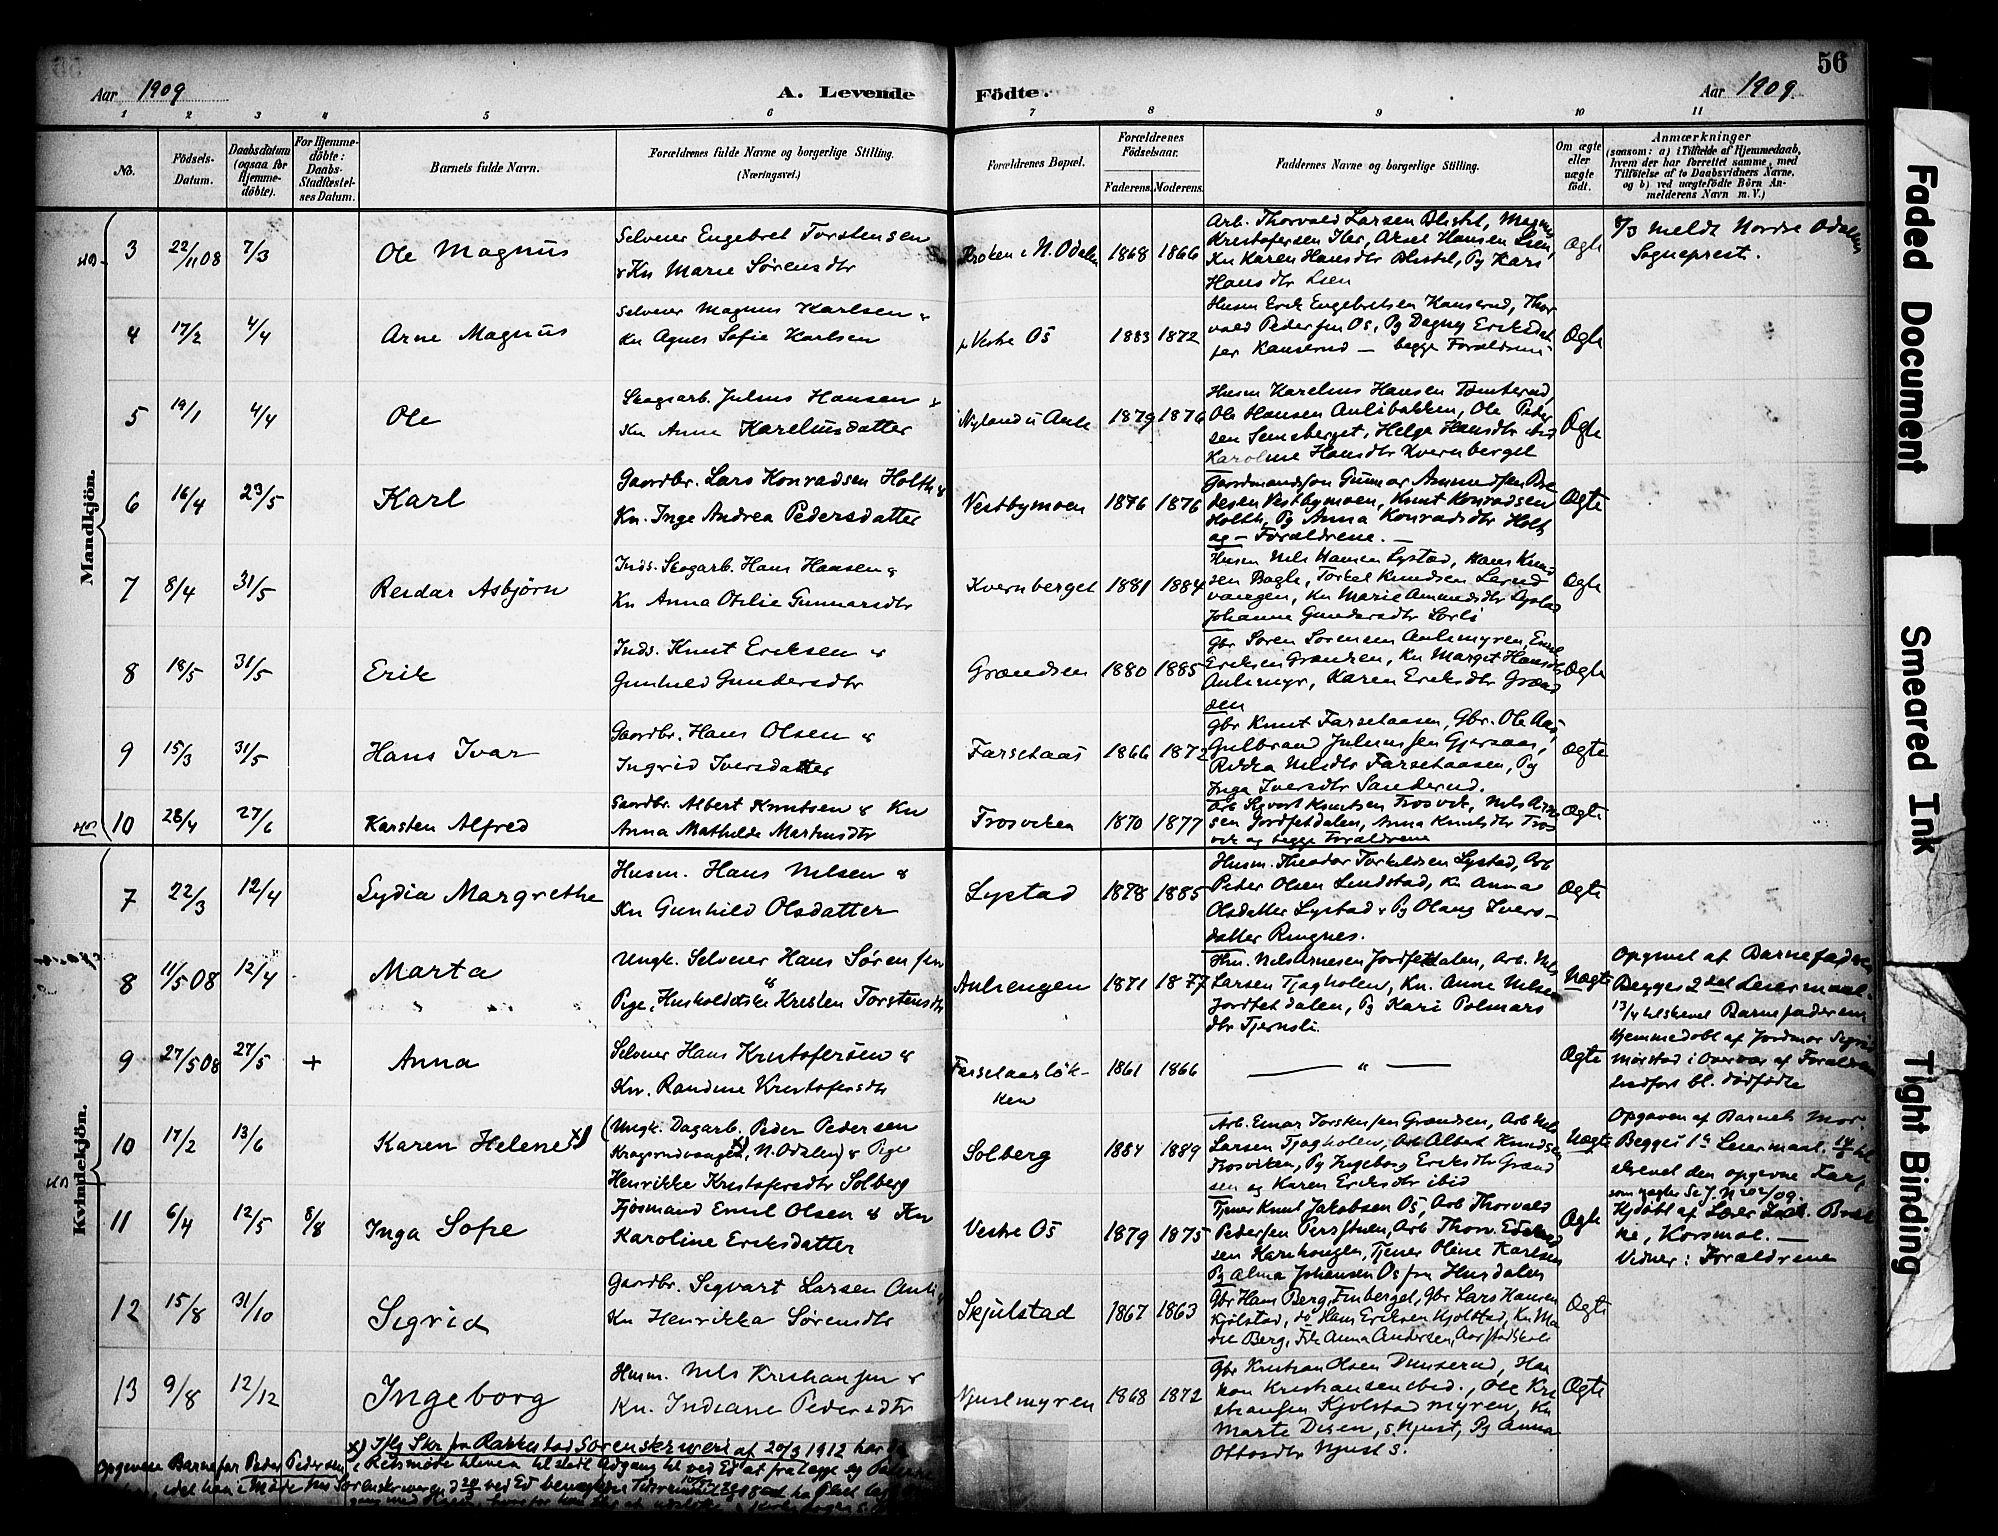 56
Aar 1909
A. Levende Födte.
Aar 1909.
1 2 3 4 5 6 7 8 9 10 11
No.
Födsels-
Datum.
Daabsdatum
(ogsaa for
Hjemme-
döbte).
For Hjemme-
döbte:
Daabs-
Stadfæstel-
ses Datum.
Barnets fulde Navn.
Forældrenes fulde Navne og borgerlige Stilling.
(Næringsvei.)
Forældrenes Bopæl.
Forældrenes
Födselsaar.
Faderens. Moderens.
Faddernes Navne og borgerlige Stilling.
Om ægte
eller
uægte
født.
Anmærkninger
(saasom: a) i Tilfælde af Hjemmedaab,
hvem der har forrettet samme, med
Tilföielse af to Daabsvidners Navne,
og b) ved uægtefödte Börn An-
melderens Navn m. V.)
Mandkjön.
3 22/11 08 7/3 Ole Magnus
Selveier Engebret Torstensen
& Kn Marie Sørensdtr
Kroken i N. Odalen 1868 1866
Arb. Thorvald Larsen Blistel, Magnus
Kristofersen Iler, Aksel Hansen Lien,
Kn Karen Hansdtr Blistel, Pg Kari
Hansdtr Lien
Ægte
8/3 meldt Nordre Odalens
Sogneprest.
4 17/2 4/4 Arne Magnus
Selveier Magnus Karlsen &
Kn Agnes Sofie Karlsen
Vestre Os 1883 1872
Husm Erik Engebretsen Kanserud, Thor
vald Pedersen Os, Pg Dagny Eriksdat
ter Kanserud — begge Forældrene
Ægte
5 19/1 4/4 Ole
Skogsarb. Julius Hansen &
Kn Anne Kareliusdatter
Nyland u Aule 1879 1876
Husm Karelius Hansen Tomterud,
Ole Hansen Aulibakken, Ole Peder
sen Semeberget, Helga Hansdtr ibid
Karoline Hansdtr Kvernberget
Ægte
6 16/4 23/5 Karl
Gaardbr. Lars Konradsen Holth &
Kn. Inge Andrea Pedersdatter
Vestbymoen 1876 1876
Gaardmandssøn Gunnar Ammundsen Pe
dersen Vestbymoen, Knut Konradsen
Holth, Pg Anna Konradsdtr Holt
og — Forældrene. —
Ægte
7 8/4 31/5 Reidar Asbjørn
Inds. Skogarb. Hans Hansen &
Kn Anna Otilie Gunnarsdtr
Kvernberget 1881 1884
Husm Nils Hansen Lystad, Hans Knud
sen Bagle, Torkel Knudsen
vangen, Kn Marie Ammundsdtr Lystad
Johanne Gundersdtr Sorli
Ægte
8 18/5 31/5 Erik
Inds. Knut Eriksen &
Gunhild Gundersdtr
Grændsen 1880 1885
Gbr Søren Sørensen Aulimyren, Emil
Eriksen Grændsen, Kn Marget Hansdtr
Aulimyr, Karen Eriksdtr Grænd
sen
Ægte
9 15/3 31/5 Hans Ivar
Gaardbr. Hans Olsen &
Ingrid Iversdatter
Farsetaas 1866 1872
Gbr Knut Farsetaasen, Gbr. Ole Aas,
Gulbrand Juliussen Gjersaas,
Rikka Nilsdtr Farsetaasen, Pg
Inga Iversdtr Sanderud.
Ægte
10 28/4 27/6 Karsten Alfred
Gaardbr. Albert Knutsen & Kn
Anna Mathilde Martinsdtr
Trosviken 1870 1877
Arb Sigvart Knutsen Trosvik, Nils Arne
sen Jordfetdalen, Anna Knutsdtr Tros
vik og begge Forældrene
Ægte
Kvindekjön.
7 22/3 12/4 Lydia Margrethe
Husm. Hans Nilsen &
Kn Gunhild Olsdatter
Lystad 1878 1885
Husm. Theodor Torkildsen Lystad, Arb
Peter Olsen Lindstad, Kn Anna
Olsdatter Lystad & Pg Olaug Ivers-
datter Ringnes.
Ægte
8 11/5 08 12/4 Marta
Ungk. Selveier Hans Sørensen
Pige, Husholderske Kristen Torstensdtr
Auliengen 1871 1877
Hm. Nils Arnesen Jordfetdalen, Arb. Nils
Larsen Tjagholen, Kn. Anne Nilsen
Jordfetdalen, Pg Kari Polmars
dtr Tjernsli.
Uægte
Opgivet af Barnefaderen
Begges 2det Leiermaal.
13/4 tilskrevet Barnefaderen
9 27/5 08 27/5 + Anna
Selveier Hans Kristofersen &
Kn. Randine Kristofersdtr
Farsetaasløk-
ken 1861 1866
— " —
Ægte
Hjemmedøbt af Jordmor Sigrid
Mørstad i Overvær af Forældrene
Indført bl. dødfødte
10 17/2 13/6 Karen Helene x)
(Ungk. Dagarb. Peder Pedersen
Kragsrudvangen x), N. Odalen) & Pige
Henrikke Kristofersdtr Solberg
Solberg 1884 1889
Arb. Einar Torsteinsen Grændsen, Arb Nils
Larsen Tjagholen, Arb Albert Knudsen
Trosviken, Pg Ingeborg Eriksdtr Grænd
sen og Karen Eriksdtr ibid
Uægte
Opgaven af Barnets Mor.
Begges 1ste Leiermaal. 14/6 til
skrevet den opgivne Far,
som nægter Se J. N 202/09.
11 6/4 12/5 8/8 Inga Sofie
Fjøsmand Emil Olsen & Kn
Karoline Eriksdatter
Vestre Os 1879 1875
Tjener Knut Jakobsen Os, Arb Thorvald
Pedersen Persstuen, Arb Thorv. Edvard
sen Karihaugen, Tjener Oline Karlsen
Pg Alma Johansen Os fra Hurdalen
Ægte
Hjdøbt af Lærer Brek
ke, Korsmoe. —
Vidner: Forældrene
12 15/8 31/10 Sigrid
Gaardbr. Segvart Larsen Auli &
Kn Henrikka Sørensdtr
Skjulstad 1867 1863
Gbr Hans Berg, Finberget, Gbr Lars Hansen
Kjølstad, do Hans Eriksen Kjølstad, Kn Ma
rie Berg, Frk Anna Andersen, Aarstadskole
Ægte
13 9/8 12/12 Ingeborg
Husm. Nils Kristiansen &
Kn. Indiane Pedersdtr
Njustmyren 1868 1872
Gbr Kristian Olsen Dunserud, Haa
kon Kristiansen ibid., Ole Kri
stiansen Kjølstadmyren, Kn
Marte Disen, s. Njust, Pg Anna
Ottosdtr Njust S.
Ægte
x) Ifls Skr fra Rakkestad Sorenskriveri af 20/3 1912 har den
opgivne Barnefar Peder Pedersen i Retsmøde
Faded Document
Smeared Ink
Tight Binding